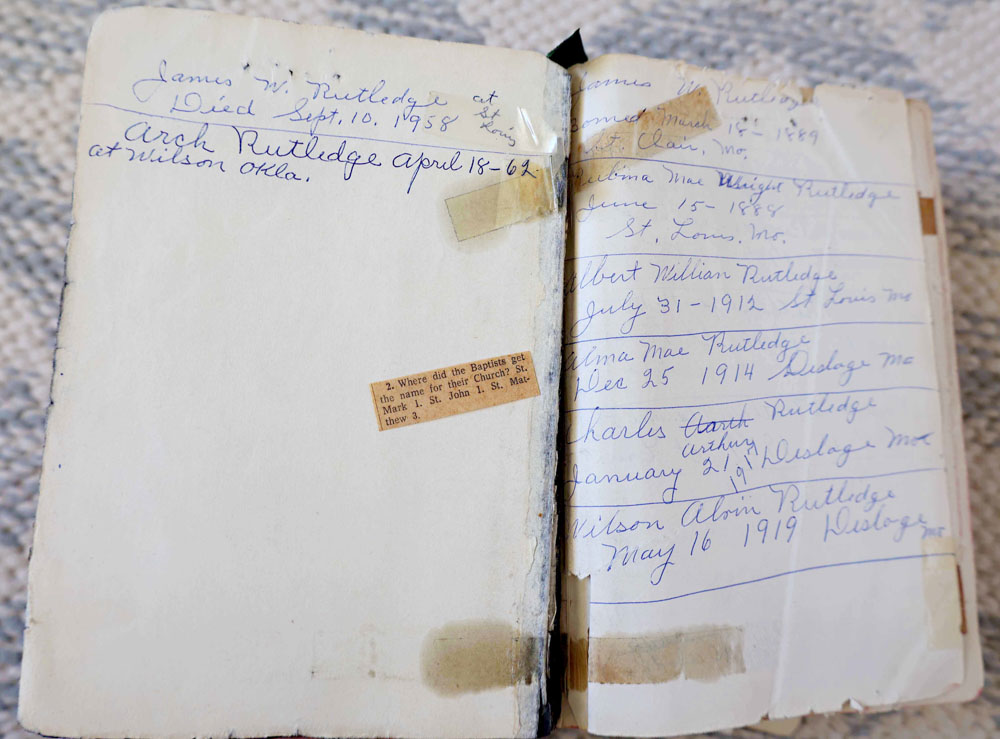 James W. Rutledge at
Died Sept. 10. 1958 St
Louis
Arch Rutledge April 18-62
at Wilson Okla.
2. Where did the Baptists get
the name for their Church? St.
Mark 1. St. John 1. St. Mat-
thew 3.
James W. Rutledge
March 18-1889
St. Clair, Mo.
Mae Wright Rutledge
June 15-1888
St. Louis. Mo.
Albert Willian Rutledge
July 31-1912 St Louis Mo
Alma Mae Rutledge
Dec 25 1914 Desloge Mo
Charles Rutledge
Arthur
January 21 Desloge Mo
191
Wilson Alvin Rutledge
May 16 1919 Desloge
Mo